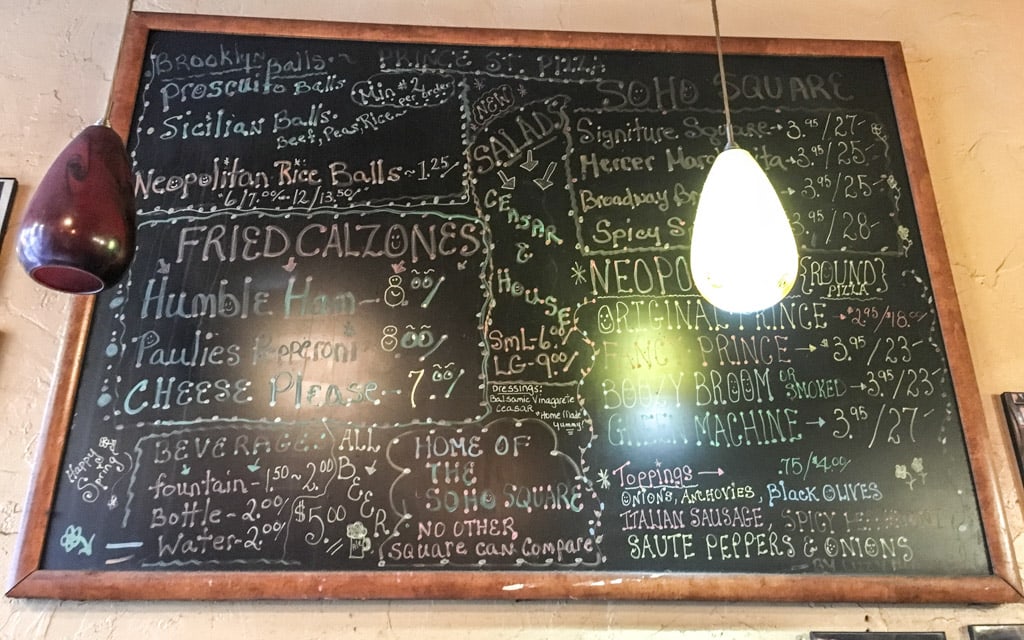 Brooklyn Balls ~
PRINCE ST. PIZZA
Proscuito Balls
Min # 2 per order
Sicilian Balls.
Beef, Peas, Rice~
Neopolitan Rice Balls ~ 1.25~
6/7.00~ 12/13.50/
FRIED CALZONES
Humble Ham - 8.00/
Paulies Pepperoni 8.00/
CHEESE Please - 7.00/
NEW
SALAD
CEASAR
&
HOUSE
SmL-6.00/
LG-9.00/
Dressings:
Balsamic Vinagrete
Ceasar *Home Made
yummy!
SOHO SQUARE
Signiture Square 3.95/27~
Mercer 3.95/25~
Broadway 3.95/25~
Spicy 3.95/28~
{ROUND}
PIZZA
ORIGINAL PRINCE 2.95/18.00
PRINCE 3.95/23~
BOOZY BROOM OR SMOKED 3.95/23~
GREEN MACHINE 3.95/27
Toppings .75/4.00/
ONIONS, ANCHOVIES, BLACK OLIVES
ITALIAN SAUSAGE, SPICY
SAUTE PEPPERS & ONIONS
Happy
Spring
BEVERAGE:
fountain - 1.50~2.00
Bottle - 2.00
Water - 2.00
ALL
BEER
$5.00
HOME OF
THE
SOHO SQUARE
NO OTHER
square can compare